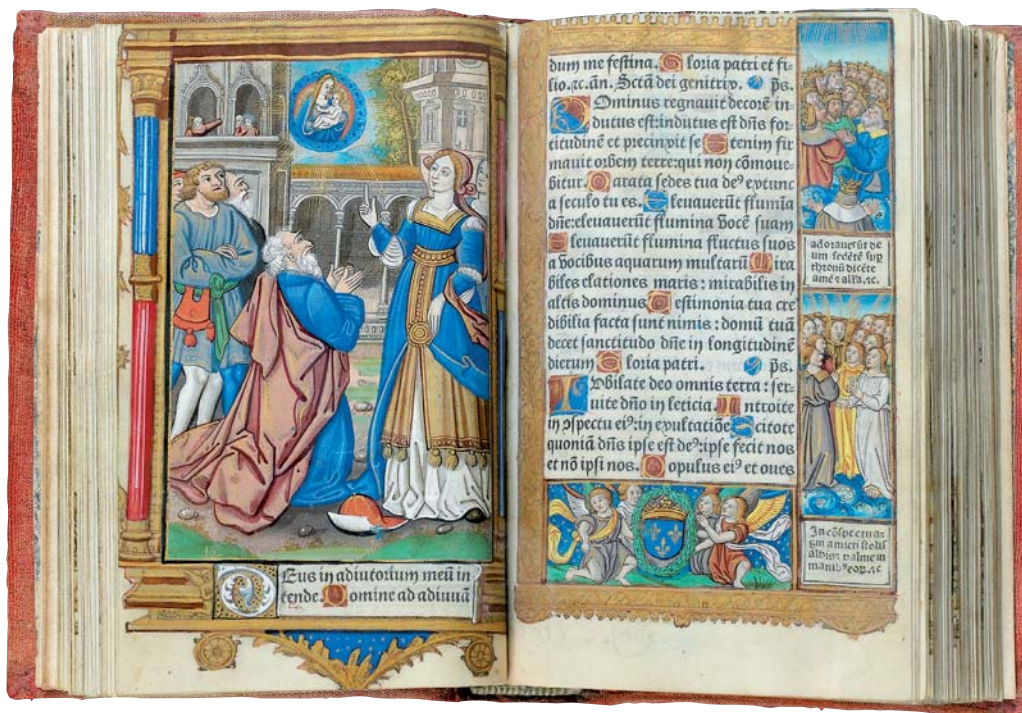 Deus in adiutorium meū in
tende. Domine ad adiuvā
dum me festina. Gloria patri et fi-
lio.ꝛc.ān. Sctā dei genitrix. ps.
Dominus regnauit decorē in-
dutus est:indutus est dn̄s for-
titudinē et precinxit se Etenim fir
mauit orbem terre:qui non cōmoue-
bitur. Parata sedes tua deꝰ extunc
a seculo tu es. Eleuauerūt flumīa
dn̄e:eleuauerūt flumina vocē suam
Eleuauerūt flumina fluctus suos
a vocibus aquarum multarū Mira
biles elationes maris: mirabilis in
altis dominus Testimonia tua cre
dibilia facta sunt nimis: domū tuā
decet sanctitudo dn̄e in longitudinē
dierum Gloria patri. ps.
Iubilate deo omnis terra: ser-
uite dn̄o in leticia. Introite
in ɔspectu eiꝰ:in exultatiōe Scitote
quoniā dn̄s ipse est deꝰ:ipse fecit nos
et nō ipsi nos. Populus eiꝰ et oues
adorauerūt de
um sedētē sup
thronū dicēte
amē: alla.ꝛc.
In cōspectu a:
gni amicti stolis
albis: palme in
manibꝰ eoꝝ.ꝛc